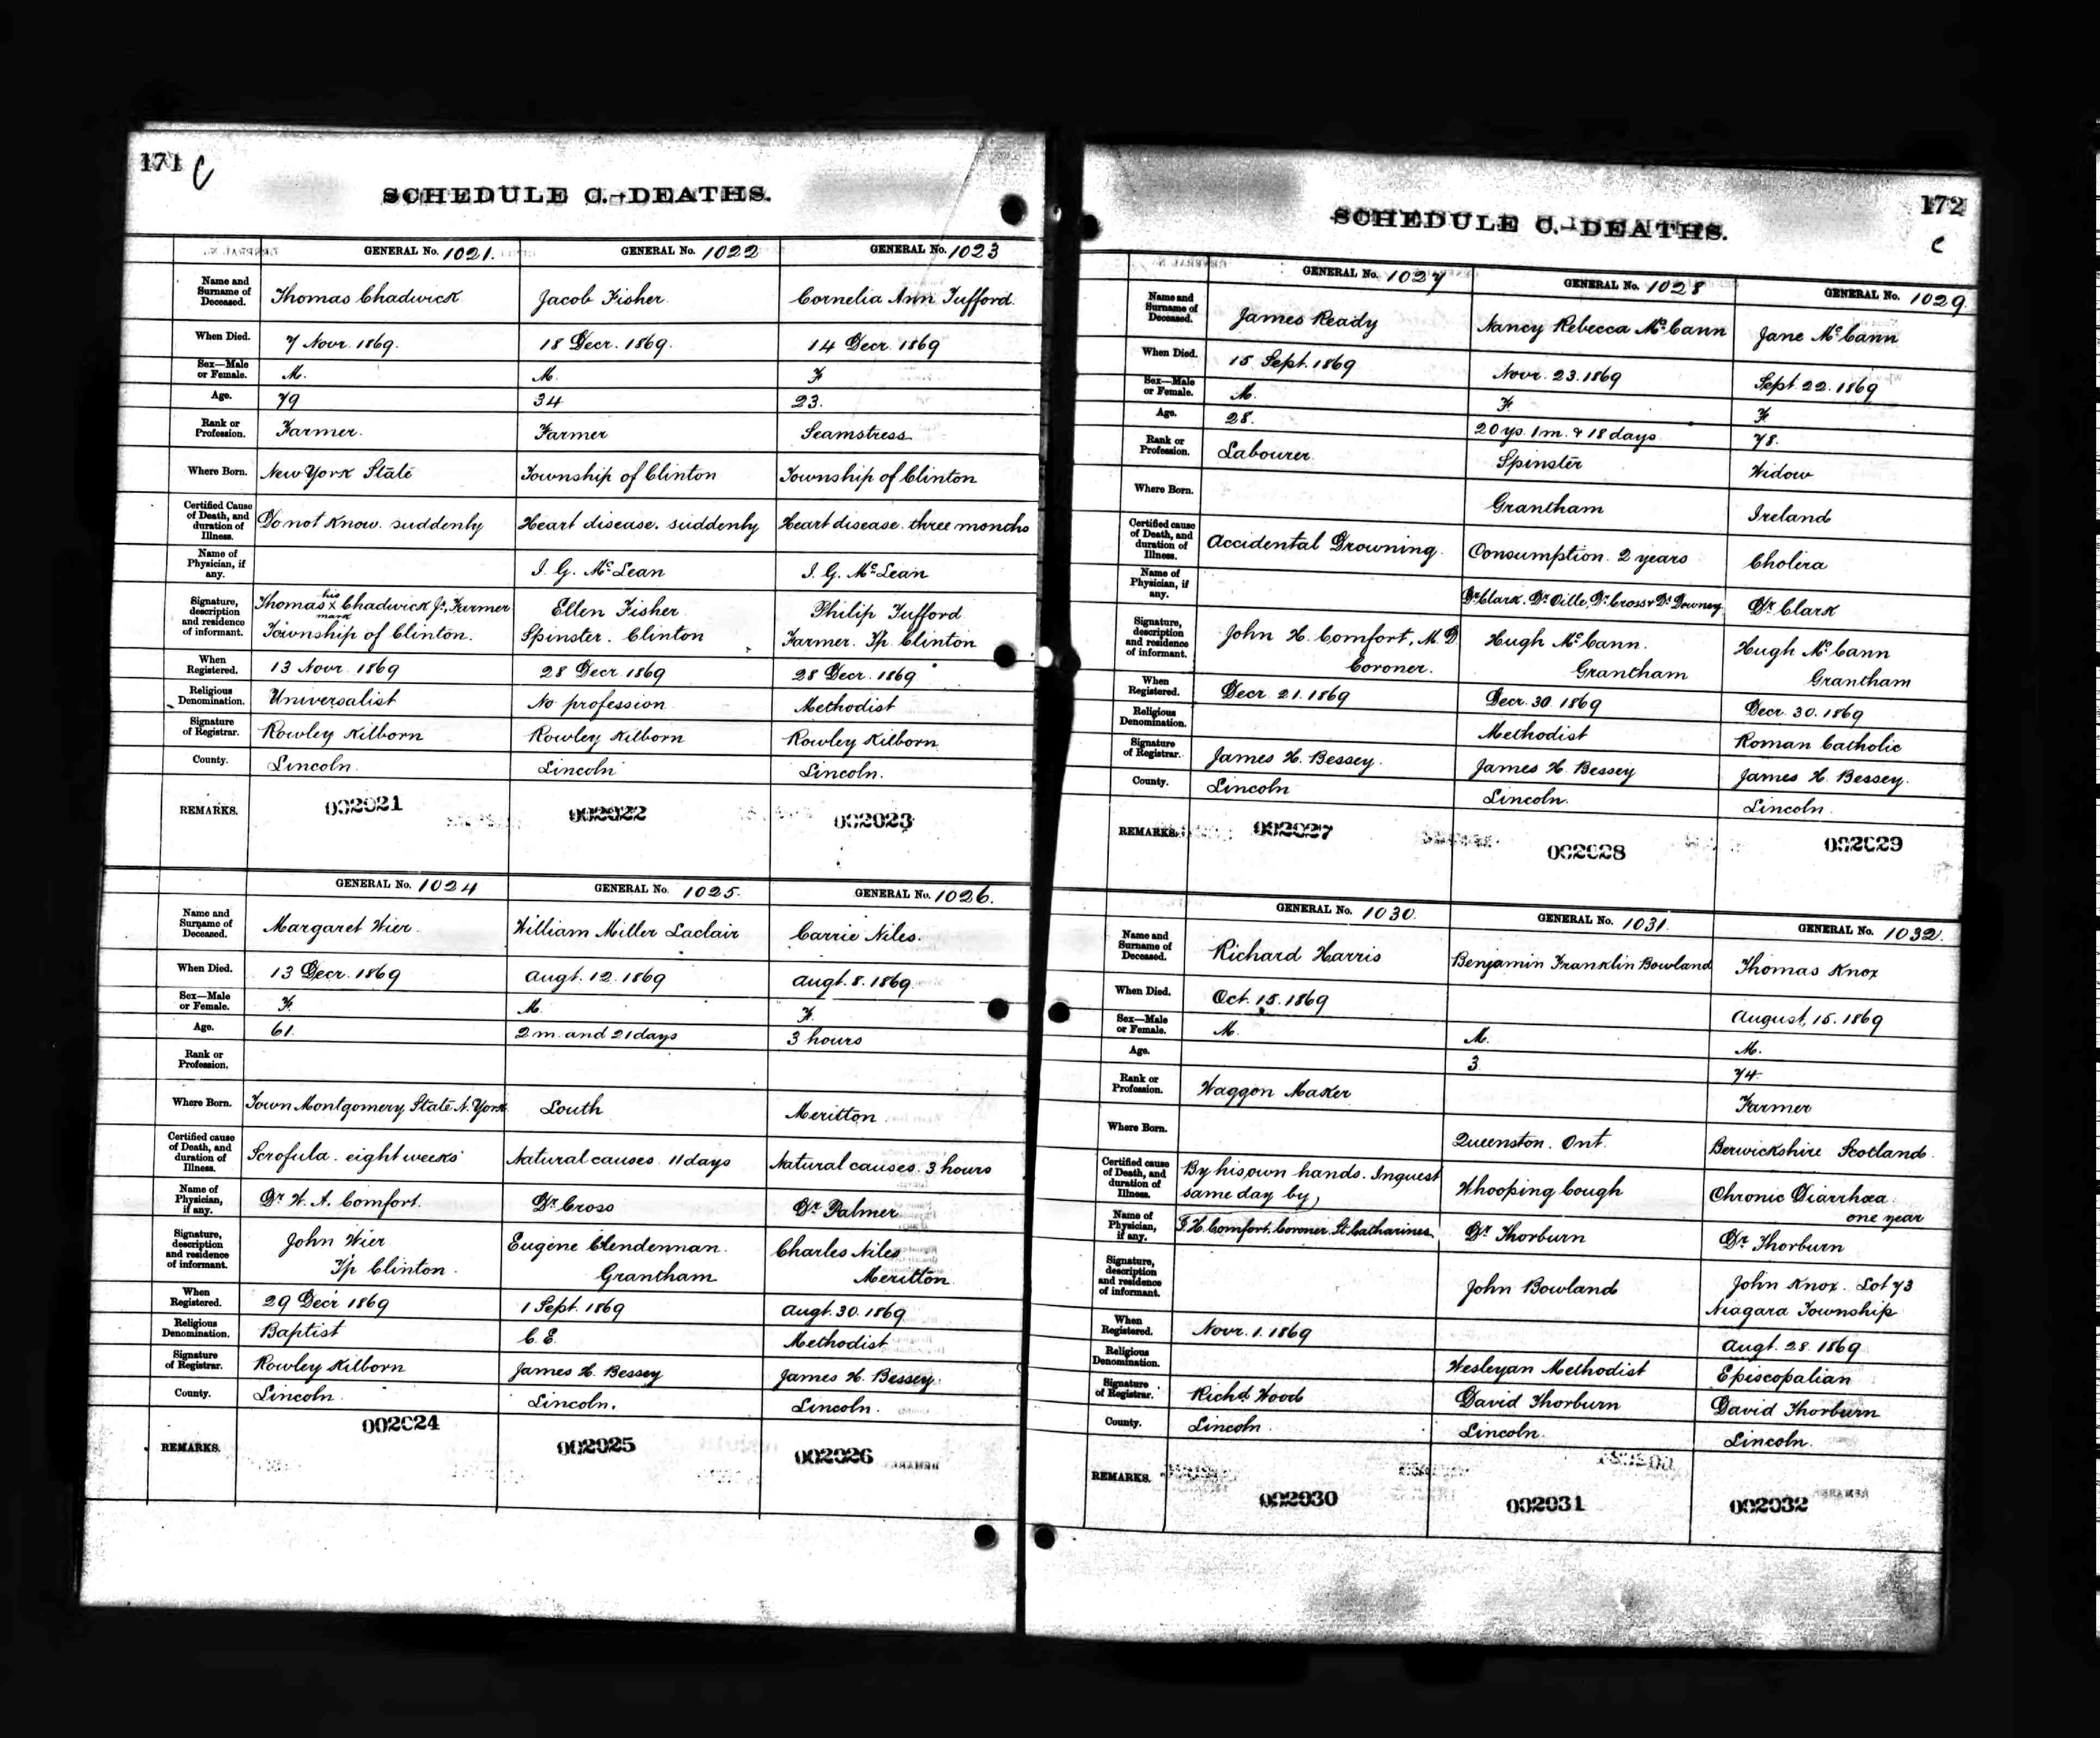 171 C
SCHEDULE C.—DEATHS.
GENERAL No. 1021. GENERAL No. 1022 GENERAL No. 1023
Name and Surname of Deceased. Thomas Chadwick Jacob Fisher. Cornelia Ann Tufford.
When Died. 7 Novr. 1869. 18 Decr. 1869. 14 Decr. 1869
Sex—Male or Female. M. M. F
Age. 79 34 23.
Rank or Profession. Farmer. Farmer Seamstress
Where Born. New York State Township of Clinton Township of Clinton
Certified Cause of Death, and duration of Illness. Do not Know. suddenly Heart disease. suddenly Heart disease. three months
Name of Physician, if any. I. G. McLean I. G. McLean
Signature, description and residence of informant. Thomas his x mark Chadwick Jr., Farmer Township of Clinton. Ellen Fisher Spinster. Clinton Philip Tufford Farmer. Tp. Clinton
When Registered. 13 Novr. 1869 28 Decr. 1869 28 Decr. 1869
Religious Denomination. Universalist No profession Methodist
Signature of Registrar. Rowley Kilborn Rowley Kilborn Rowley Kilborn
County. Lincoln. Lincoln Lincoln.
REMARKS. 002021 002022 002023
GENERAL No. 1024 GENERAL No. 1025. GENERAL No. 1026.
Name and Surname of Deceased. Margaret Wier. William Miller Laclair Carrie Niles.
When Died. 13 Decr. 1869 Augt. 12. 1869 Augt. 8. 1869.
Sex—Male or Female. F. M. F.
Age. 61. 2 m. and 21 days 3 hours
Rank or Profession.
Where Born. Town Montgomery State N. York Louth Meritton
Certified cause of Death, and duration of Illness. Scrofula. eight weeks Natural causes. 11 days Natural causes. 3 hours
Name of Physician, if any. Dr. W. A. Comfort. Dr. Cross Dr. Palmer
Signature, description and residence of informant. John Wier Tp Clinton. Eugene Clendennan. Grantham Charles Niles Meritton
When Registered. 29 Decr 1869 1 Sept. 1869 Augt. 30. 1869
Religious Denomination. Baptist C. E. Methodist
Signature of Registrar. Rowley Kilborn James H. Bessey James H. Bessey
County. Lincoln. Lincoln. Lincoln.
REMARKS. 002024 002025 002026
172 C
SCHEDULE C.—DEATHS.
GENERAL No. 1027 GENERAL No. 1028 GENERAL No. 1029.
Name and Surname of Deceased. James Ready Nancy Rebecca McCann Jane McCann
When Died. 15 Sept. 1869 Novr. 23. 1869 Sept. 22. 1869
Sex—Male or Female. M. F. F.
Age. 28. 20 ys. 1 m. & 18 days 78.
Rank or Profession. Labourer. Spinster Widow
Where Born. Grantham Ireland
Certified cause of Death, and duration of Illness. Accidental Drowning. Consumption. 2 years Cholera
Name of Physician, if any. Dr. Clark. Dr. Oille, Dr. Cross & Dr. Downey Dr. Clark
Signature, description and residence of informant. John H. Comfort, M.D Coroner. Hugh McCann. Grantham Hugh McCann Grantham
When Registered. Decr. 21. 1869 Decr. 30 1869 Decr. 30. 1869
Religious Denomination. Methodist Roman Catholic
Signature of Registrar. James H. Bessey. James H. Bessey James H. Bessey.
County. Lincoln Lincoln. Lincoln.
REMARKS. 002027 002028 002029
GENERAL No. 1030. GENERAL No. 1031. GENERAL No. 1032.
Name and Surname of Deceased. Richard Harris Benjamin Franklin Bowland Thomas Knox
When Died. Oct. 15. 1869 August, 15. 1869
Sex—Male or Female. M. M. M.
Age. 3 74
Rank or Profession. Waggon Maker Farmer
Where Born. Queenston. Ont. Berwickshire Scotland.
Certified cause of Death, and duration of Illness. By his own hands. Inquest same day by, Whooping Cough Chronic Diarrhœa. one year
Name of Physician, if any. J. H. Comfort. Coroner. St. Catharines. Dr. Thorburn Dr. Thorburn
Signature, description and residence of informant. John Bowland John Knox. Lot 73 Niagara Township
When Registered. Novr. 1. 1869 Augt. 28. 1869
Religious Denomination. Wesleyan Methodist Episcopalian
Signature of Registrar. Richd. Wood David Thorburn David Thorburn
County. Lincoln. Lincoln. Lincoln.
REMARKS. 002030 002031 002032